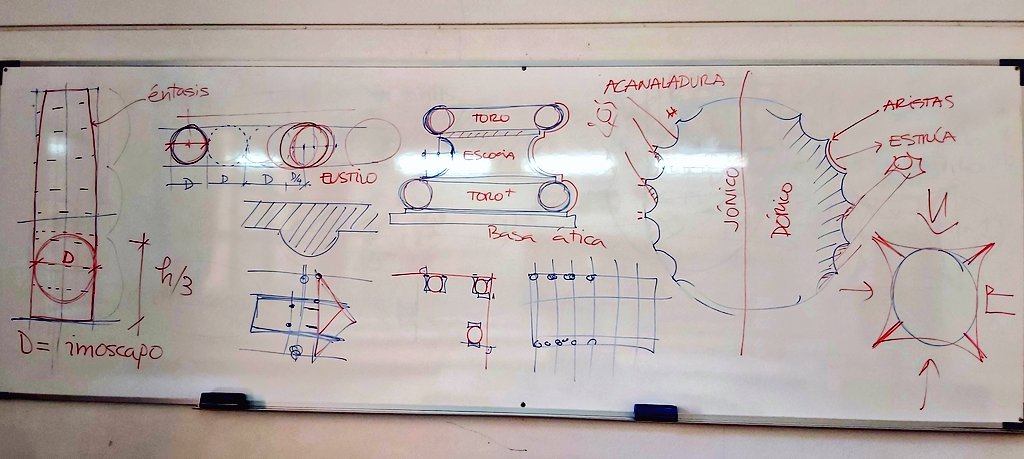 éntasis
D
h/3
D = imoscapo
D D D D/4 EUSTILO
TORO
ESCOCIA
TORO+
Basa ática
ACANALADURA
JÓNICO
DÓRICO
ARISTAS
ESTRÍA